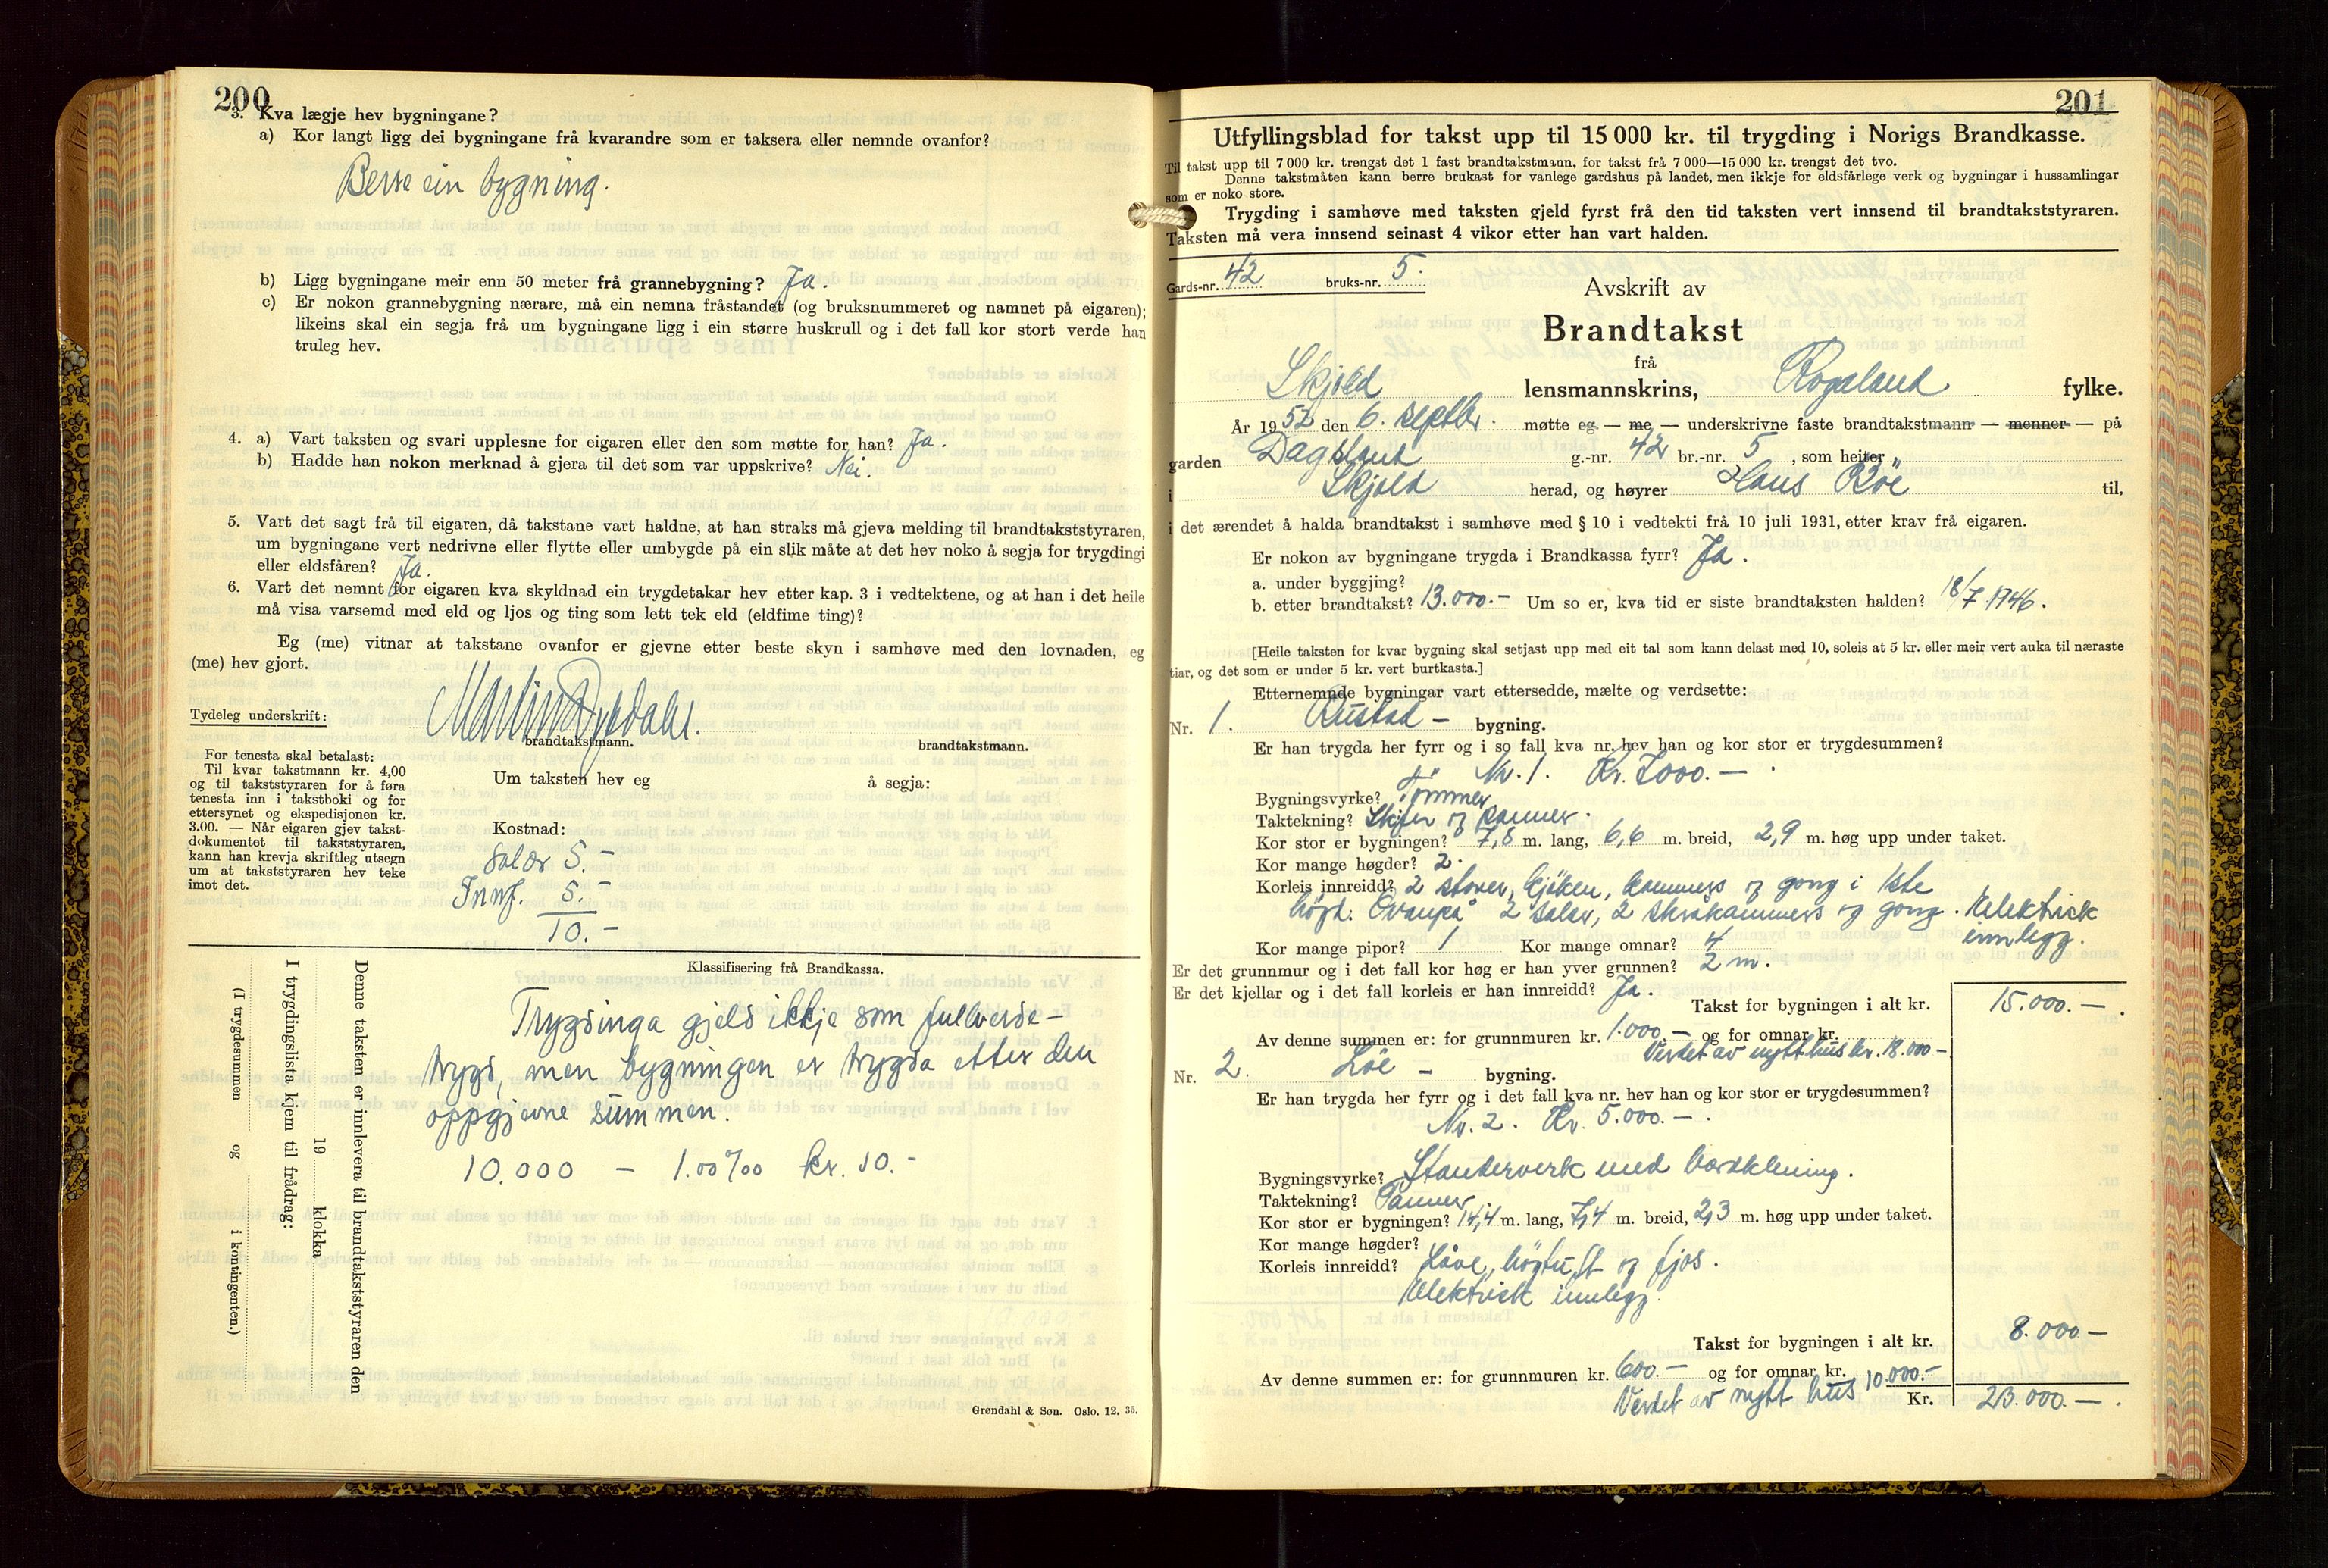 200
3. Kva lægje hev bygningane?
a) Kor langt ligg dei bygningane frå kvarandre som er taksera eller nemnde ovanfor?
Berre ein bygning.
b) Ligg bygningane meir enn 50 meter frå grannebygning? Ja.
c) Er nokon grannebygning nærare, må ein nemna fråstandet (og bruksnummeret og namnet på eigaren);
likeins skal ein segja frå um bygningane ligg i ein større huskrull og i det fall kor stort verde han
truleg hev.
4. a) Vart taksten og svari upplesne for eigaren eller den som møtte for han? Ja.
b) Hadde han nokon merknad å gjera til det som var uppskrive? Nei.
5. Vart det sagt frå til eigaren, då takstane vart haldne, at han straks må gjeva melding til brandtakststyraren,
um bygningane vert nedrivne eller flytte eller umbygde på ein slik måte at det hev noko å segja for trygdingi
eller eldsfåren? Ja.
6. Vart det nemnt for eigaren kva skyldnad ein trygdetakar hev etter kap. 3 i vedtektene, og at han i det heile
må visa varsemd med eld og ljos og ting som lett tek eld (eldfime ting)?
Eg (me) vitnar at takstane ovanfor er gjevne etter beste skyn i samhøve med den lovnaden, eg
(me) hev gjort.
Tydeleg underskrift:
brandtakstmann. brandtakstmann.
For tenesta skal betalast:
Til kvar takstmann kr. 4,00
og til takststyraren for å føra
tenesta inn i takstboki og for
ettersynet og ekspedisjonen kr.
3.00. — Når eigaren gjev takst-
dokumentet til takststyraren,
kann han krevja skriftleg utsegn
um at takststyraren hev teke
imot det.
Um taksten hev eg å segja:
Kostnad:
Salær 5.-
Innf. 5.-
10.-
Klassifisering frå Brandkassa.
Trygdinga gjeld ikkje som fullverde-
trygd, men bygningen er trygda etter den
oppgjevne summen.
10.000 - 1.00‰ kr. 10.-
Denne taksten er innlevera til brandtakststyraren den
19 klokka
I trygdingslista kjem til frådrag:
(I trygdesummen og i kontingenten.)
Grøndahl & Søn. Oslo. 12. 35.
201
Utfyllingsblad for takst upp til 15 000 kr. til trygding i Norigs Brandkasse.
Til takst upp til 7 000 kr. trengst det 1 fast brandtakstmann, for takst frå 7 000—15 000 kr. trengst det tvo.
Denne takstmåten kann berre brukast for vanlege gardshus på landet, men ikkje for eldsfårlege verk og bygningar i hussamlingar
som er noko store.
Trygding i samhøve med taksten gjeld fyrst frå den tid taksten vert innsend til brandtakststyraren.
Taksten må vera innsend seinast 4 vikor etter han vart halden.
Gards-nr. 42 bruks-nr. 5.
Avskrift av
Brandtakst
frå
Skjold lensmannskrins, Rogaland fylke.
År 1952 den 6. septbr. møtte eg — me — underskrivne faste brandtakstmann — menner — på
garden Dagsland g.-nr. 42 br.-nr. 5 , som heiter "
i Skjold herad, og høyrer Hans Böe til,
i det ærendet å halda brandtakst i samhøve med § 10 i vedtekti frå 10 juli 1931, etter krav frå eigaren.
Er nokon av bygningane trygda i Brandkassa fyrr? Ja.
a. under byggjing?
b. etter brandtakst? 13.000.- Um so er, kva tid er siste brandtaksten halden? 18/7 1946.
[Heile taksten for kvar bygning skal setjast upp med eit tal som kann delast med 10, soleis at 5 kr. eller meir vert auka til næraste
tiar, og det som er under 5 kr. vert burtkasta.]
Etternemnde bygningar vart ettersedde, mælte og verdsette:
Nr. 1. Bustad - bygning.
Er han trygda her fyrr og i so fall kva nr. hev han og kor stor er trygdesummen?
Nr. 1. Kr. 7000.-
Bygningsvyrke? Tömmer
Taktekning? Skifer og panner.
Kor stor er bygningen? 7,8 m. lang, 6,6 m. breid, 2,9 m. høg upp under taket.
Kor mange høgder? 2.
Korleis innreidd? 2 stover, kjöken, kammers og gong i 1ste
högd. Ovanpå 2 salar, 2 skråkammers og gong. Elektrisk
innlegg.
Kor mange pipor? 1 Kor mange omnar? 4
Er det grunnmur og i det fall kor høg er han yver grunnen? 2 m.
Er det kjellar og i det fall korleis er han innreidd? Ja.
Takst for bygningen i alt kr. 15.000.-
Av denne summen er: for grunnmuren kr. 1.000.- og for omnar kr.
Verdet av nytt hus kr. 18.000-
Nr. 2. Löe - bygning.
Er han trygda her fyrr og i det fall kva nr. hev han og kor stor er trygdesummen?
Nr. 2. Kr. 5.000.-.
Bygningsvyrke? Standerverk med bordklening.
Taktekning? Panner
Kor stor er bygningen? 14,4 m. lang, 7,4 m. breid, 2,3 m. høg upp under taket.
Kor mange høgder?
Korleis innreidd? Låve, og fjos.
Elektrisk innlegg.
Takst for bygningen i alt kr. 8.000-
Av denne summen er: for grunnmuren kr. 600.- og for omnar kr.
Verdet av nytt hus 10.000.- Kr. 23.000.-.